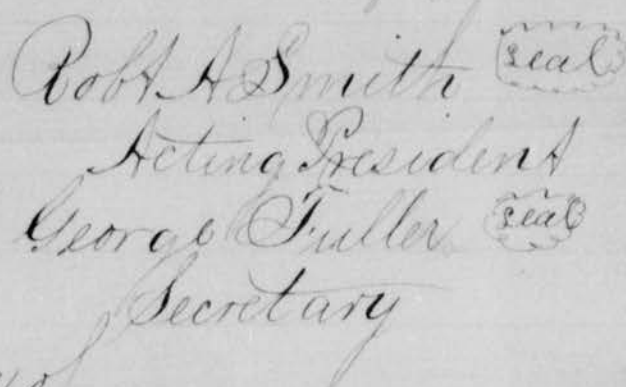 Robt A Smith seal
Acting President
George Fuller seal
Secretary